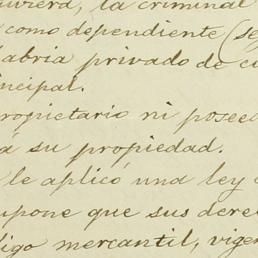 uviera, la criminal
como dependiente (se
abria privado de c
ncipal.
ropietario ni posee
a su propiedad.
le aplicó una ley
upone que sus dere
igo mercantil, vige